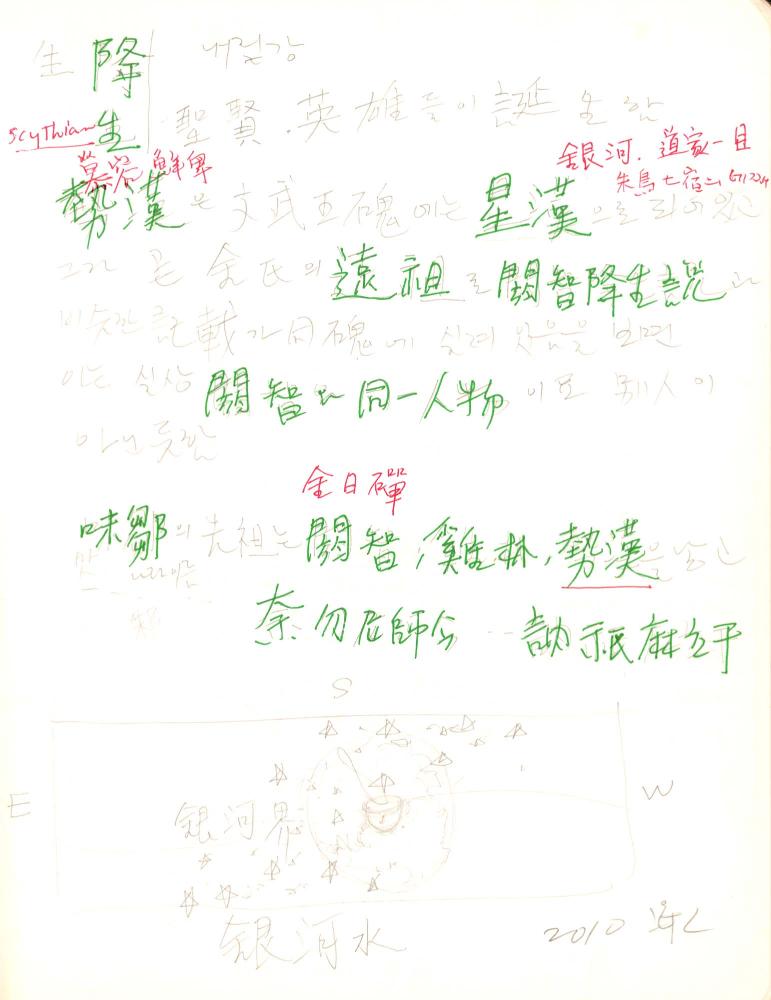 生 降 내릴강
Scythian 生 聖賢.英雄들이 誕生함
銀河. 道家一目
慕容 鮮卑
朱鳥七宿의
勢漢은 文武王碑에는 星漢으로 되어있고
그가 곧 金氏의 遠祖로 閼智降生說과
비슷한 記載가 同碑에 실려 있음을 보면
이는 실상 閼智와 同一人物이요 別人이
아닌듯함
金日磾
味鄒의 先祖는 閼智,雞林,勢漢을 낳고
奈勿尼師今 訥祗麻立干
S
E
W
銀河界
銀河水
2010